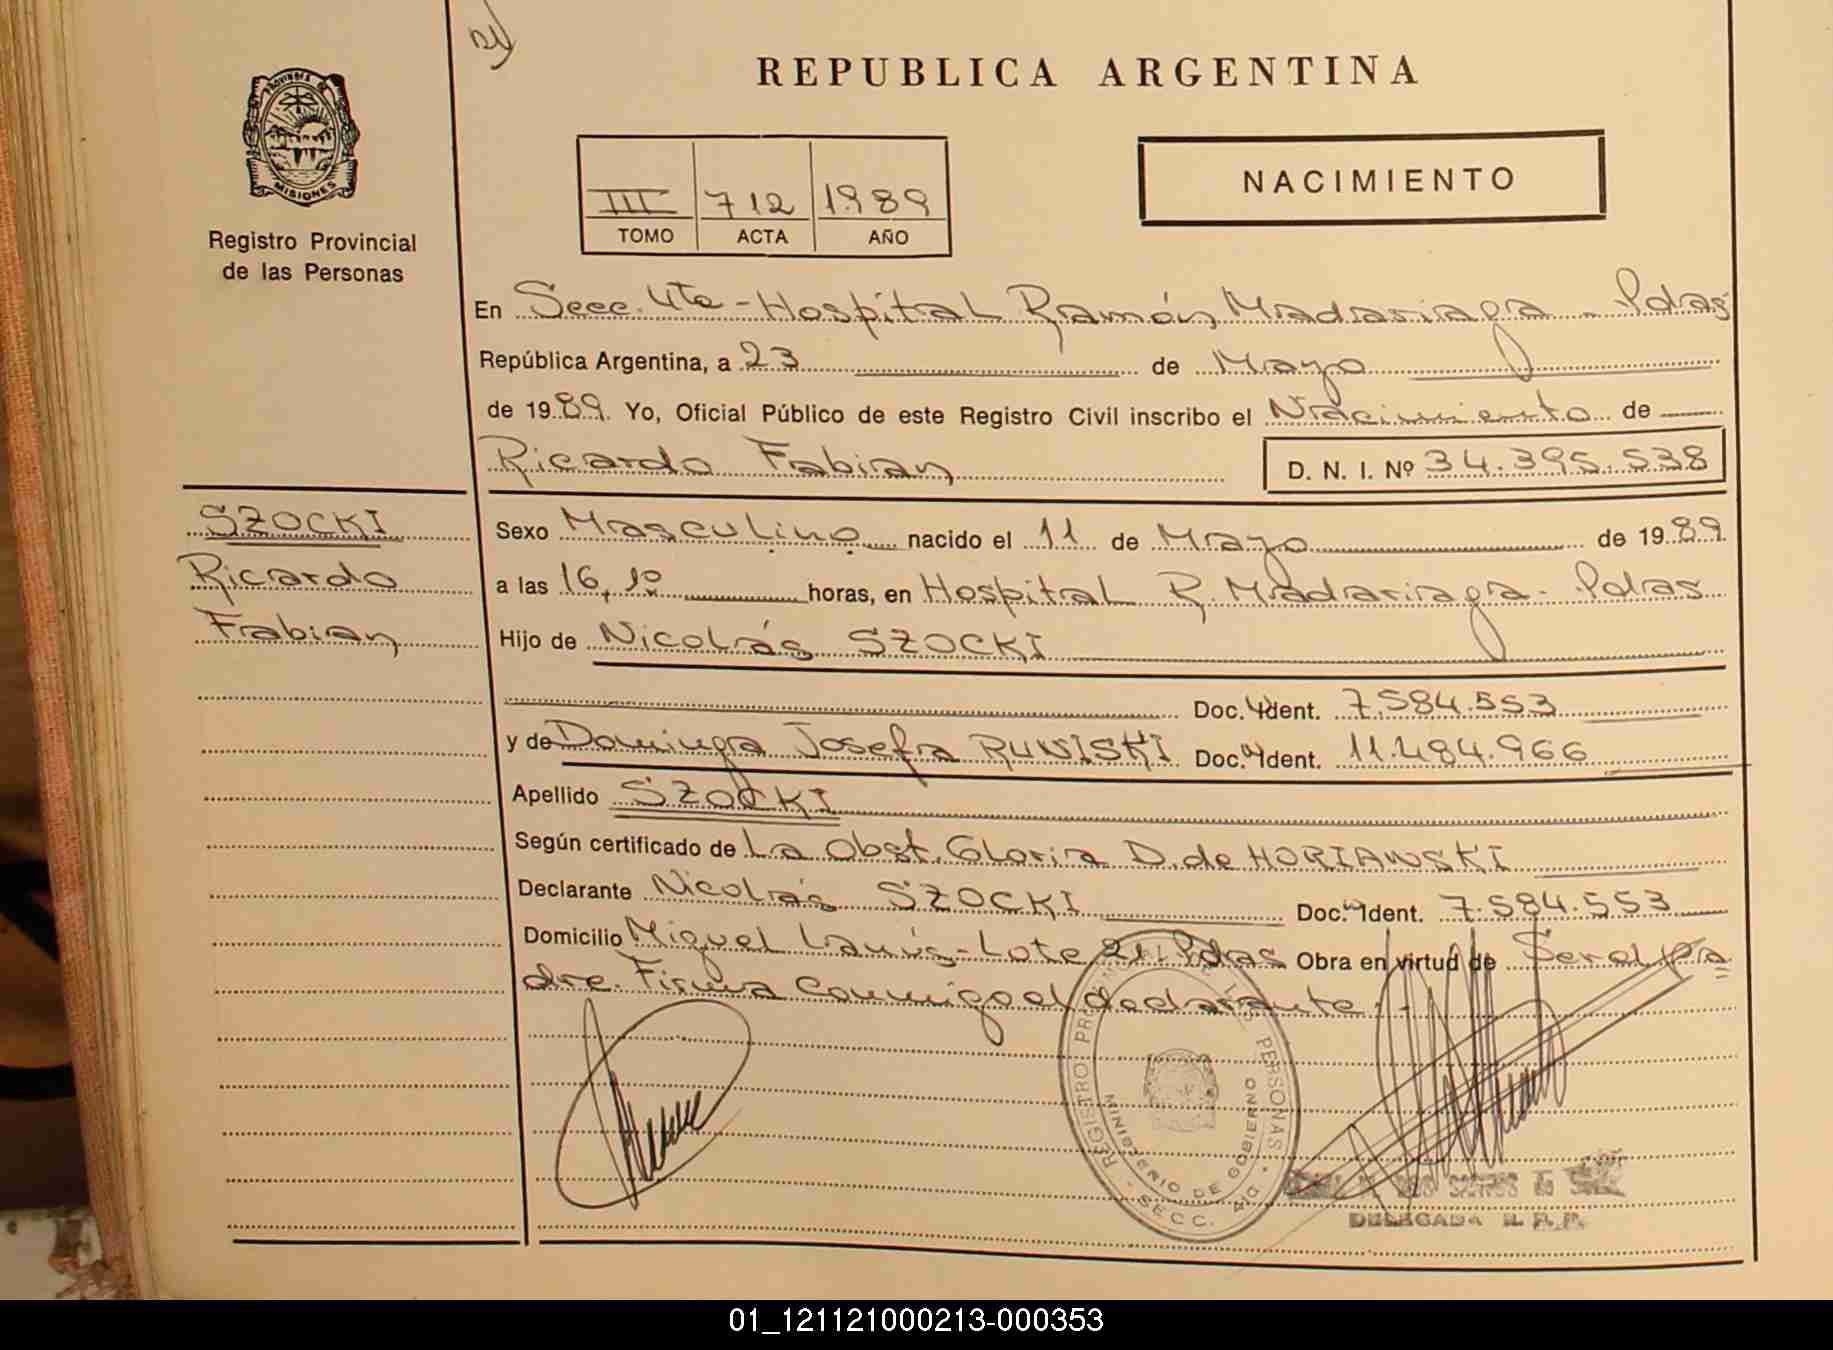 REPUBLICA ARGENTINA
PROVINCIA DE
MISIONES
Registro Provincial
de las Personas
III 712 1989
TOMO ACTA AÑO
NACIMIENTO
En Secc. 4ta - Hospital Ramón Madariaga - Pdas
República Argentina, a 23 de Mayo
de 1989. Yo, Oficial Público de este Registro Civil inscribo el Nacimiento de
Ricardo Fabian
D. N. I. Nº 34.395.538
SZOCKI
Ricardo
Fabian
Sexo Masculino nacido el 11 de Mayo de 1989
a las 16,10 horas, en Hospital R. Madariaga - Pdas
Hijo de Nicolás SZOCKI
Doc. Ident. 7.584.553
y de Dominga Josefa RUNISKI Doc. Ident. 11.484.966
Apellido SZOCKI
Según certificado de La Obst. Gloria D. de HORIANSKI
Declarante Nicolás SZOCKI Doc. Ident. 7.584.553
Domicilio Miguel Lanús - Lote 21 Pdas Obra en virtud de Ser el pa
dre. Firma conmigo el declarante.
REGISTRO PERSONAS
MINISTERIO DE GOBIERNO
SECC. 4ta
DELEGADA R. P. P.
01_121121000213-000353